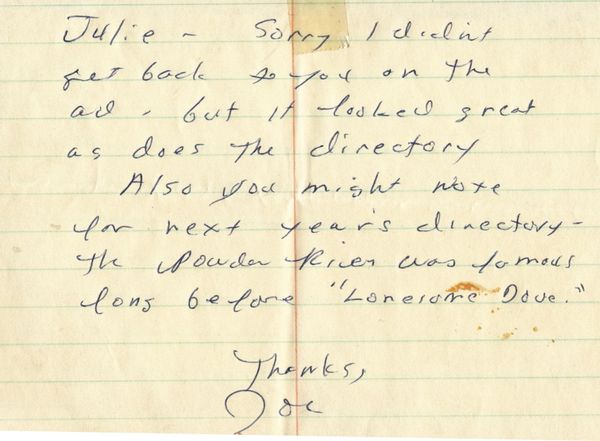 Julie - Sorry I didnt
get back to you on the
ad - but it looked great
as does the directory
Also you might note
for next year's directory -
The Powder River was famous
long before "Lonesome Dove."
Thanks,
Joe